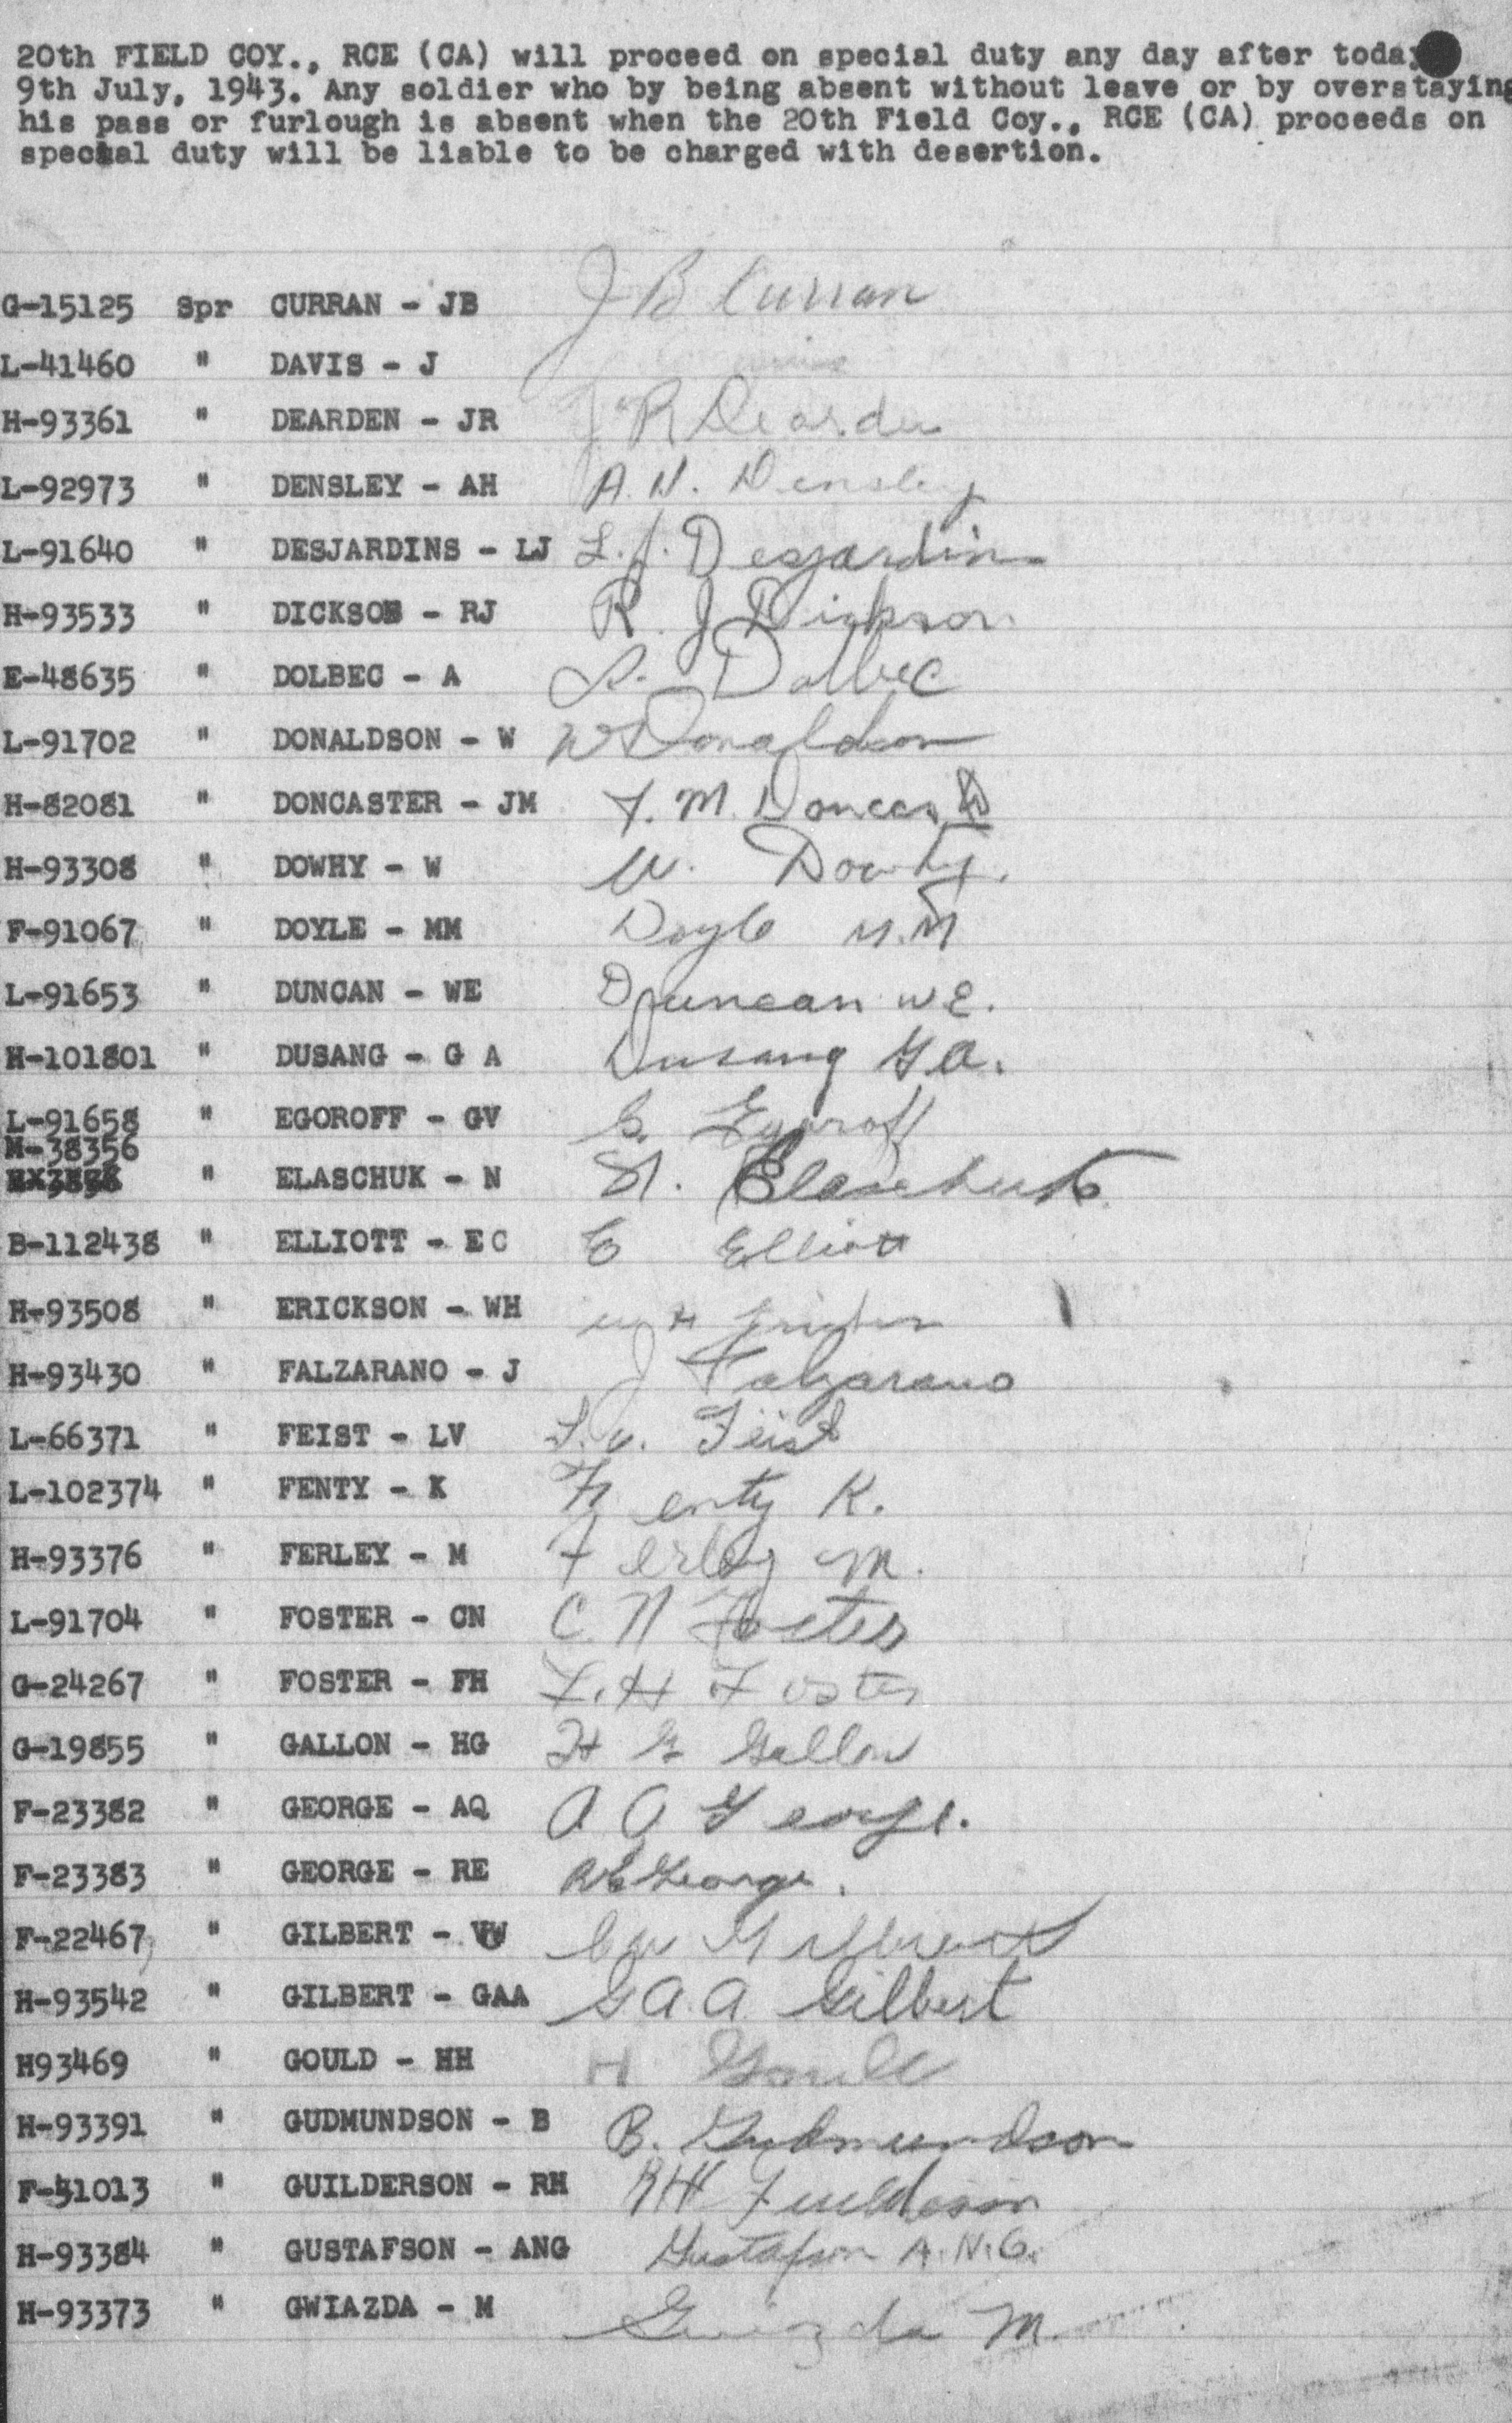 20th FIELD COY., RCE (CA) will proceed on special duty any day after today
9th July, 1943. Any soldier who by being absent without leave or by overstaying
his pass or furlough is absent when the 20th Field Coy., RCE (CA) proceeds on
special duty will be liable to be charged with desertion.
G-15125 Spr CURRAN - JB J B Curran
L-41460 " DAVIS - J
H-93361 " DEARDEN - JR J R Dearden
L-92973 " DENSLEY - AH A. H. Densley
L-91640 " DESJARDINS - LJ L. J. Desjardins
H-93533 " DICKSON - RJ R. J Dickson
E-48635 " DOLBEC - A A. Dolbec
L-91702 " DONALDSON - W W Donaldson
H-82081 " DONCASTER - JM J. M. Doncaster
H-93308 " DOWHY - W W. Dowhy.
F-91067 " DOYLE - MM Doyle M.M
L-91653 " DUNCAN - WE Duncan W E.
H-101801 " DUSANG - G A Dusang G A.
L-91658 " EGOROFF - GV G. Egoroff
M-38356
" ELASCHUK - N N. Elaschuk
B-112438 " ELLIOTT - EC E Elliott
H-93508 " ERICKSON - WH W H Erickson
H-93430 " FALZARANO - J J Falzarano
L-66371 " FEIST - LV L. V. Feist
L-102374 " FENTY - K Fenty K.
H-93376 " FERLEY - M Ferley M.
L-91704 " FOSTER - CN C N Foster
G-24267 " FOSTER - FH F. H Foster
G-19855 " GALLON - HG H G Gallon
F-23382 " GEORGE - AQ A Q George.
F-23383 " GEORGE - RE R E George.
F-22467 " GILBERT - VW Gilbert
H-93542 " GILBERT - GAA G A. A. Gilbert
H93469 " GOULD - HH H Gould
H-93391 " GUDMUNDSON - B B. Gudmundson
F-51013 " GUILDERSON - RH R H Guilderson
H-93384 " GUSTAFSON - ANG Gustafson A. N. G.
H-93373 " GWIAZDA - M Gwiazda M.